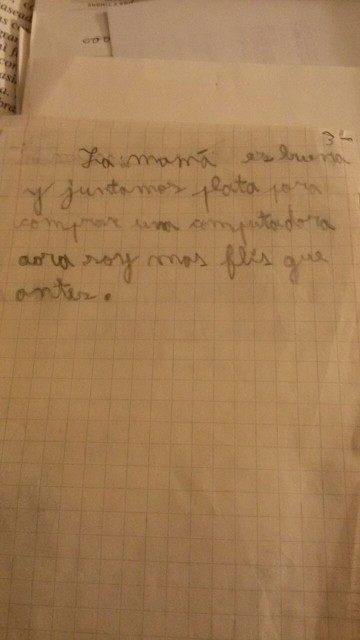 3-
La mamá es buena
y juntamos plata para
comprar una computadora
aora soy mas flis que
antes.